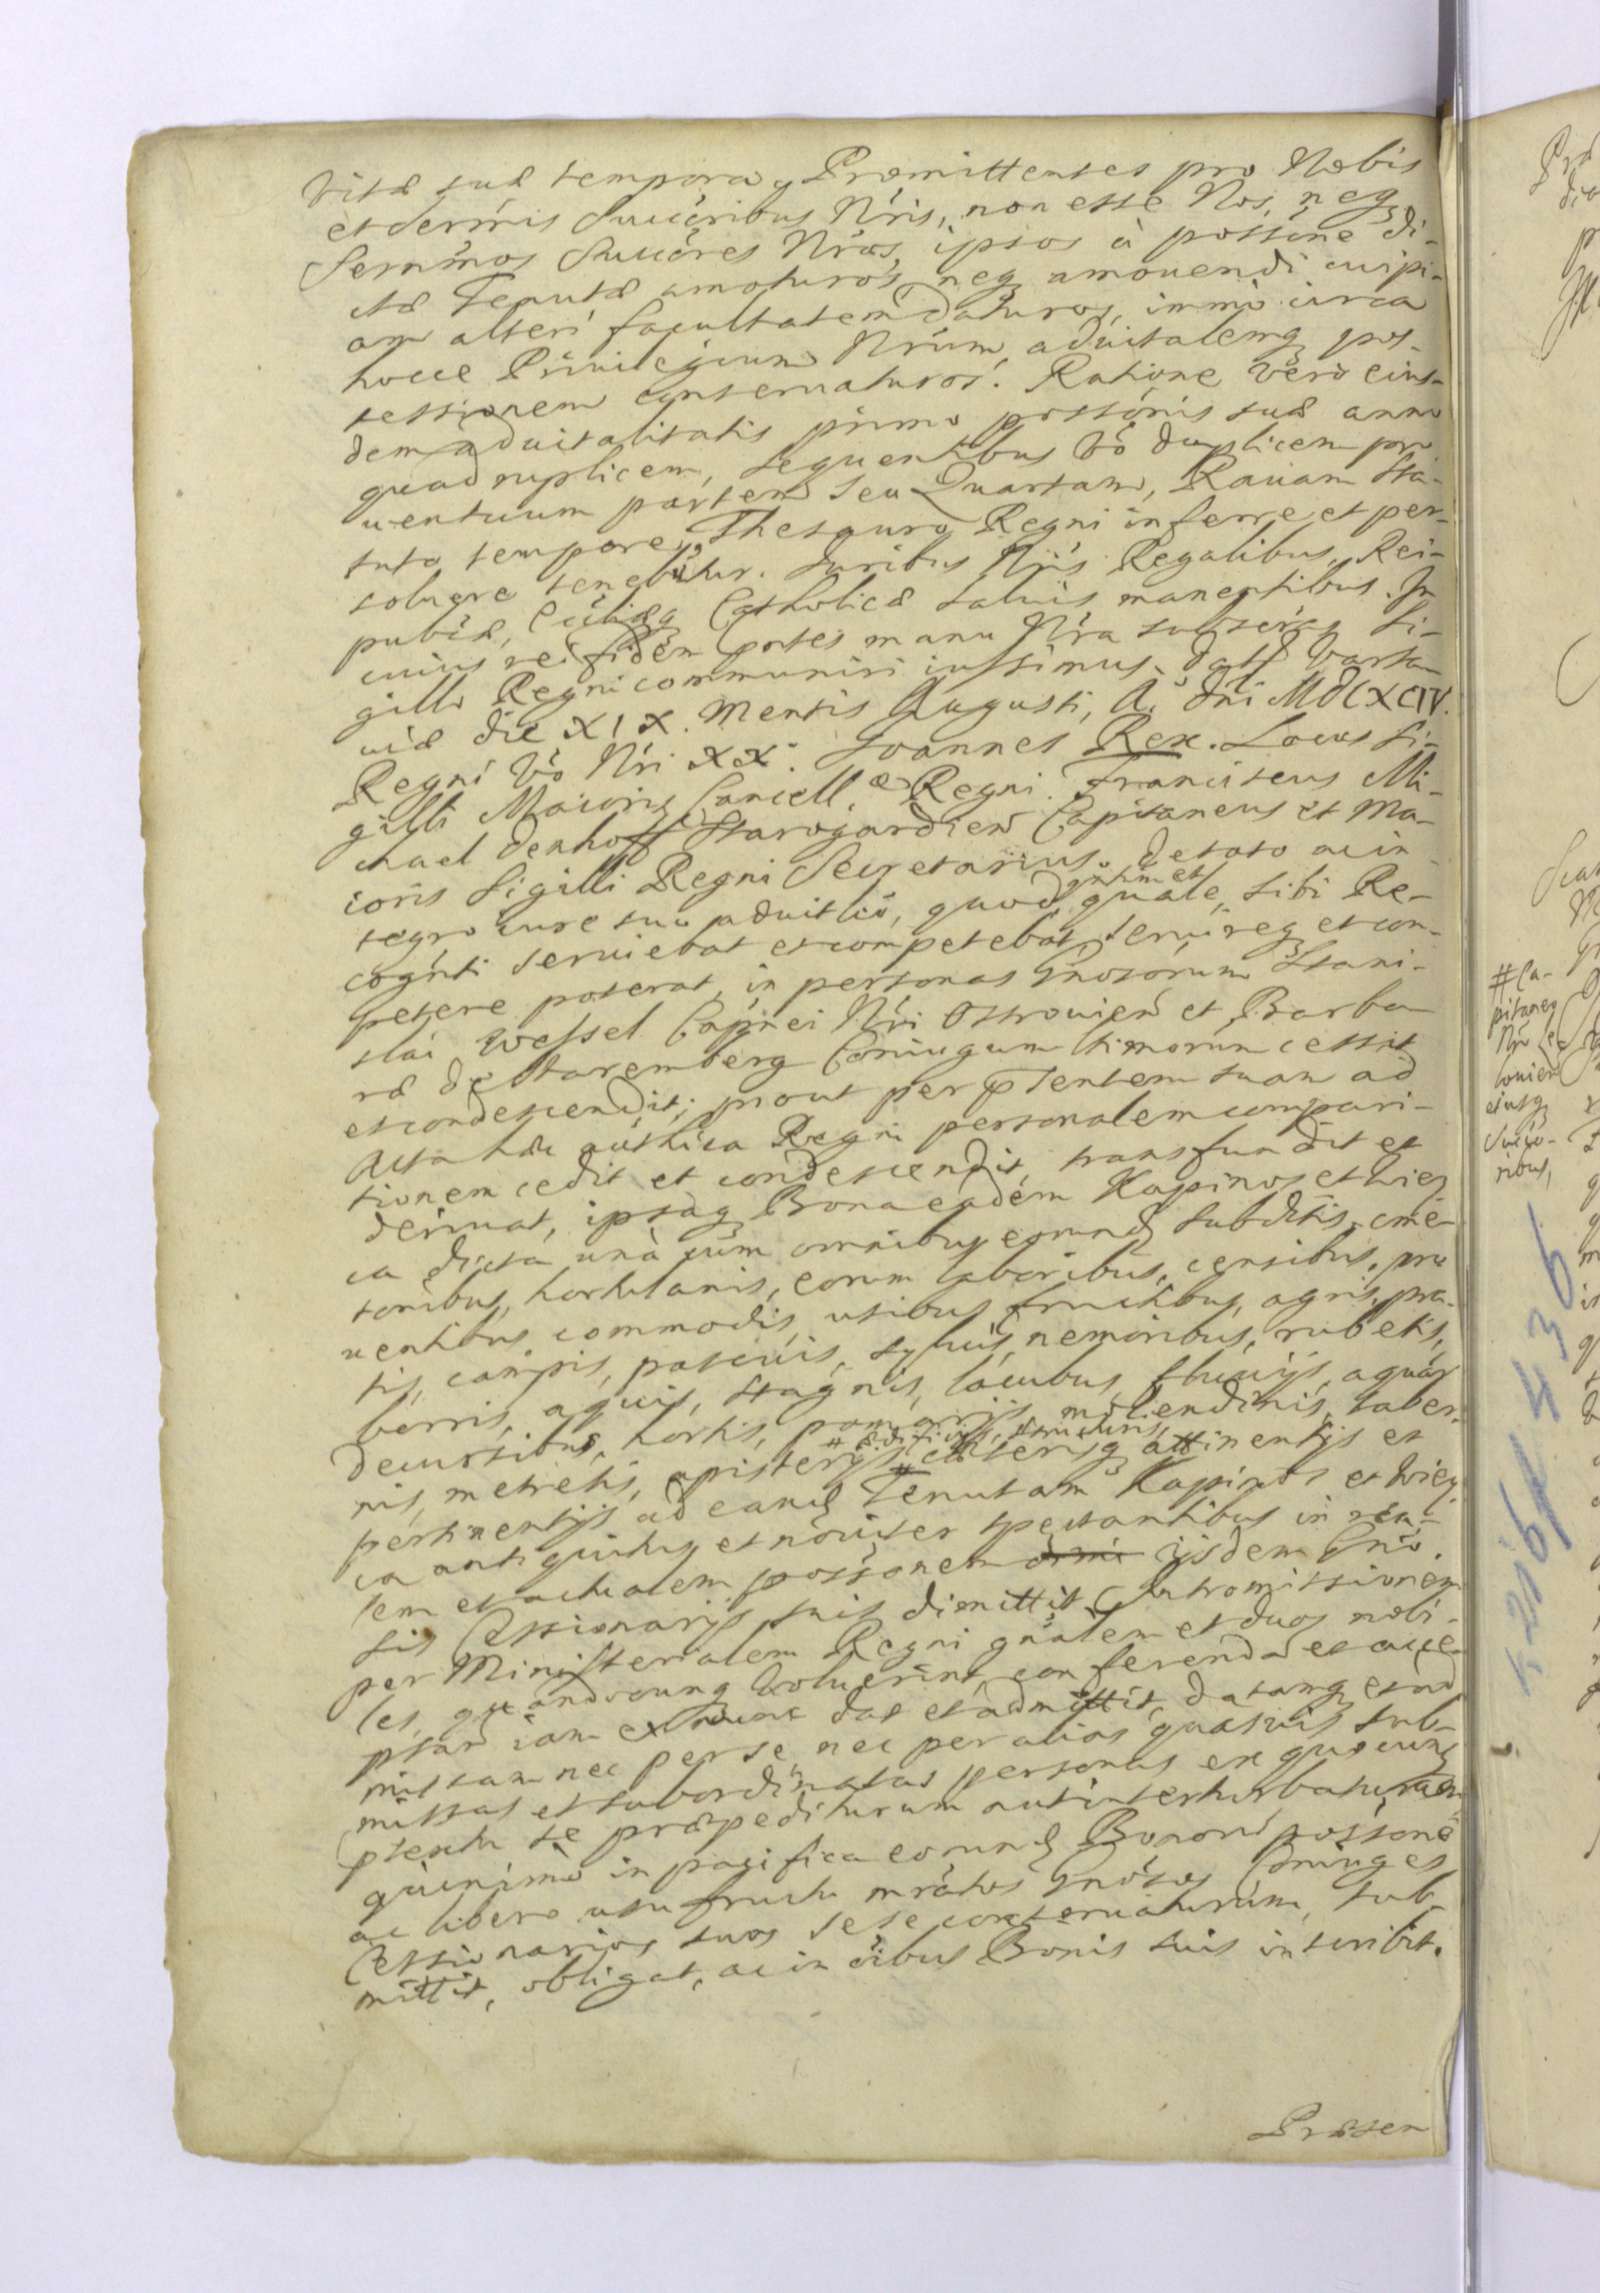 Vitæ suæ tempora, Promittentes pro Nobis
et Serṁis Succéribus Nr̃is, non esse Nos, neq
Serm̃os Succéres Nr̃os, ipsos à possiõne di-
ctæ Tenutæ amoturos neq amouendi cuipi-
am alteri facultatem daturos, immò circa
hocce Priuilegium Nr̃um aduitalemq pos-
sessionem conseruaturos. Ratione verò eius-
dem aduitalitatis primo possiõnis suæ anno
quadruplicem, sequentibus võ duplicem pro
uentuum partem seu Quartam, Rauam sta-
tuto tempore, Thesauro Regni inferre et per-
soluere tenebitur. Iuribus Nr̃is Regalibus, Rei-
pubẽæ, Ecc̃liæq Catholicæ saluis manentibus. In
cuius rei fidem pñtes manu Nr̃a subscr̃as si-
gillo Regni communiri iussimus. Datt Varsa-
uiæ die XIX. Mensis Augusti, A. Dñi MDCXCIV.
Regni võ Nr̃i XX. Ioannes Rex. Locus Si-
gilli Maioris Cancell. æ Regni. Franciscus Mi-
chael Denhoff Starogardien Capitaneus et Ma-
ioris Sigilli Regni Secretarius. De toto ac in-
tegro iure suo aduitio, quod qntum et quale, sibi Re-
cogñti seruiebat et competebat, seruireq et com-
petere poterat, in personas Gñosorum Stani-
slai Wessel Capñei Nr̃i Ostrouien et Barba-
ræ de Staremberg Coniugum ltimorum cessit
et condescendit; prout per pñtentem suam ad
Acta hæc aúthica Regni personalem compari-
tionem cedit et condescendit, transfundit et
deriuat, ipsaq Bona eadem Kapinos et Wiej
ca dicta unà cum omnibus eorund subditis, cme-
tonibus, hortulanis, eorum laboribus, censibus, pro
uentibus commodis, usibus fructibus, agris, pra-
tis, campis, pascuis, syluis, nemoribus, rubetis,
borris, aquis, stagnis, lacubus, fluuijs, aquar
decursibus, hortis, pomarijs, molendinis, taber-
# ædificijs, structuris,
nis, metretis, apisterijs # cæterisq attinentijs et
pertinentijs ad eand Tenutam Kapinos et Wiej
ca antiquitus et nouiter spectantibus in rea-
lem et actualem possiõnem ijsdem Gño-
sis Cessionarijs suis dimittit. Intromissionem
per Ministerialem Regni gñalem et duos nobi-
les, quandocunq voluerint, conferenda et acce-
ptand iam ex nunc dat et admittit, datamq et ad
missam nec per se nec per alias quasuis sub-
missas et subordinatas personas ex quocunq
ptextu se præpediturum aut interturbaturum
quinimò in pacifica eorund Bonorũ possiõne
ac libero usufructu mr̃atos Gnõsos Coniuges
Cessionarios suos sese conseruaturum, sub-
mittit, obligat, ac in oĩbus Bonis suis inscribit.
Præsen
# Ca-
pitaneo
Nr̃o
louien
eiusq
Succo-
ribus,